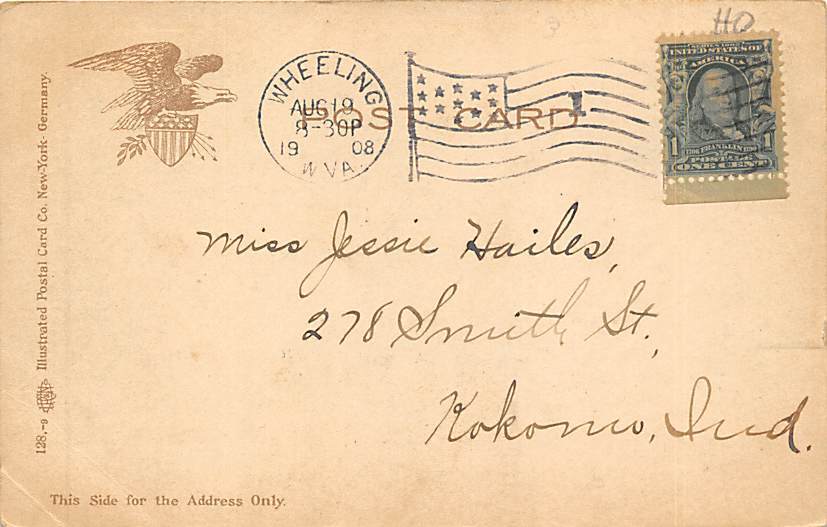 HO
WHEELING
AUG 19
8-30P
19 08
W VA.
POST CARD
1
SERIES 1902
UNITED STATES OF
AMERICA
1 1706 FRANKLIN 1790 1
POSTAGE
ONE CENT
Miss Jessie Hailes,
278 Smith St.,
Kokomo, Ind.
128.-9 Illustrated Postal Card Co. New-York- Germany.
This Side for the Address Only.